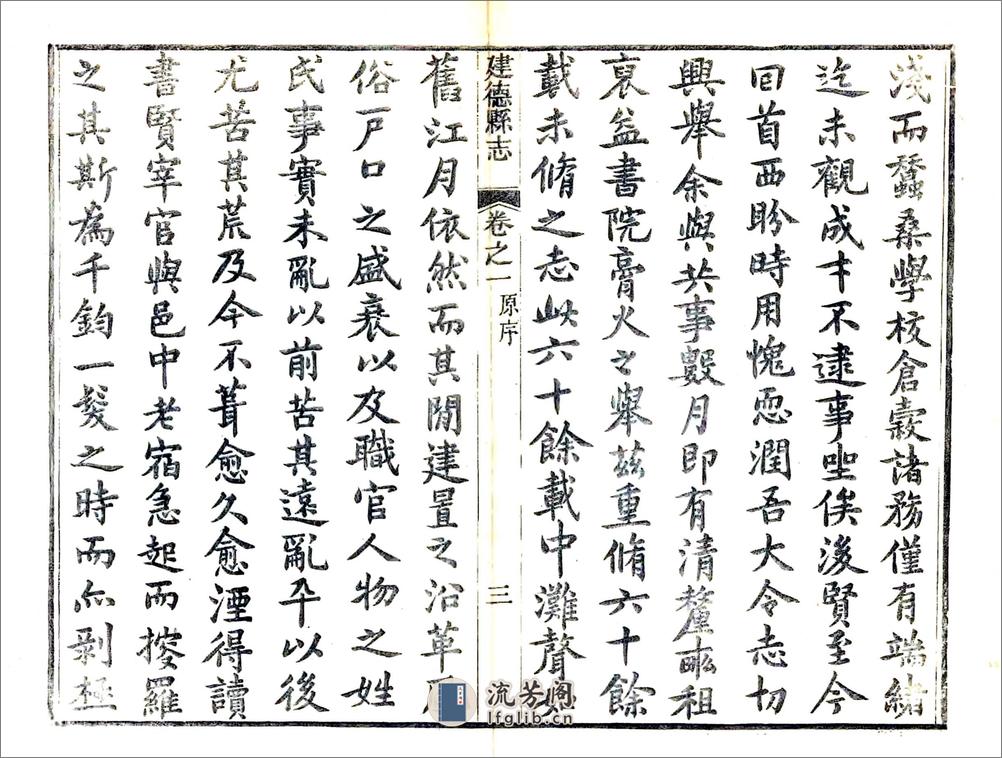 淺而蠶桑學校倉穀諸務僅有端緒
迄未觀成才不逮事望俟後賢至今
回首西盼時用愧恧潤吾大令志切
興舉余與共事數月即有清釐畝租
裒益書院膏火之舉茲重脩六十餘
載未脩之志此六十餘載中灘聲如
建德縣志
卷之一
原序
三
舊江月依然而其閒建置之沿革
俗戶口之盛衰以及職官人物之姓
氏事實未亂以前苦其遠亂平以後
尤苦其荒及今不葺愈久愈湮得讀
書賢宰官與邑中老宿急起而搜羅
之其斯為千鈞一髮之時而亦剝極
流芳阁
lfglib.cn